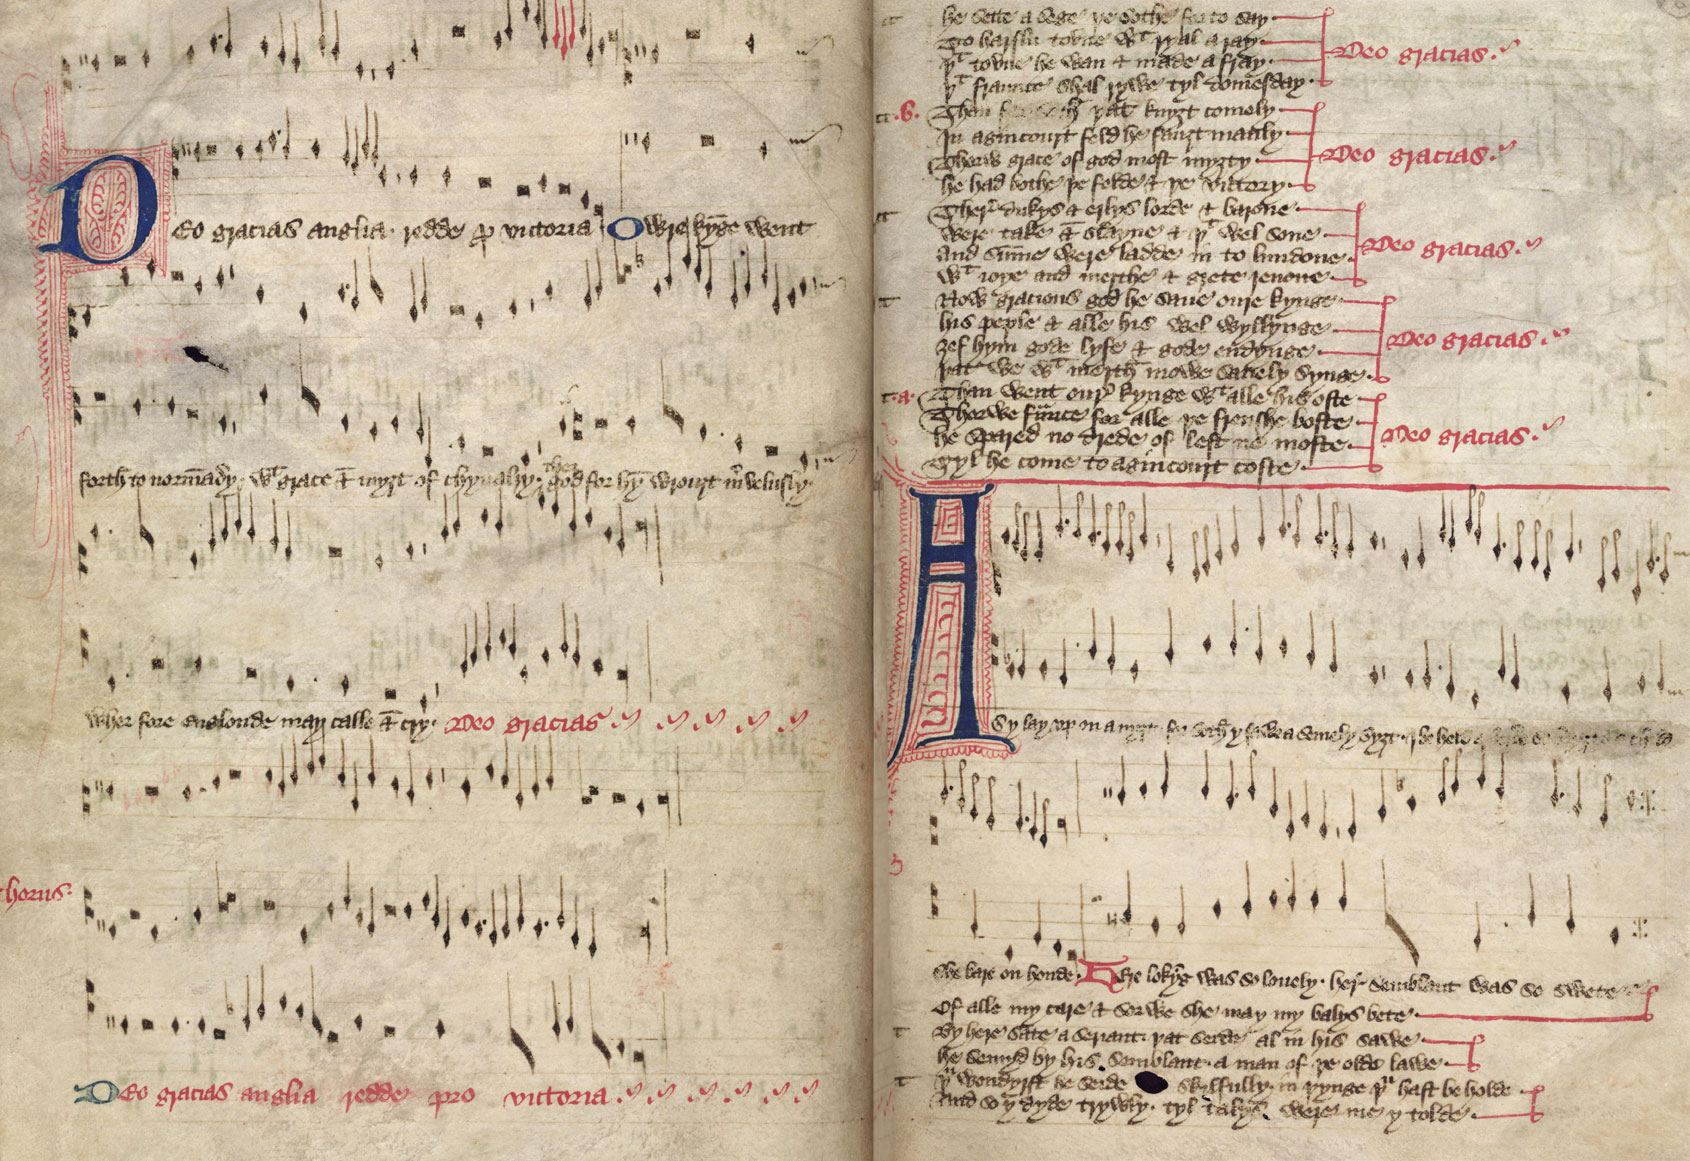 Deo gracias anglia. redde p victoria Owre kynge went
forth to normādy. wt grace & myȝt of chyvalry. ther god for hȳ wrouȝt mvelusly.
wher fore englonde may calle & cry. Deo gracias
chorus.
Deo gracias anglia redde pro victoria
he sette a sege þe sothe for to say
To harflu toune wt ryal aray
þt toune he wan & made a fray
þt fraunce shal rywe tyl domesday
Deo gracias.
Than þat knyȝt comely
In agincourt feld he fauȝt manly
Thorw grace of god most myȝty
he had bothe þe felde & þe victory
Deo gracias.
Ther dukys & erlys lorde & barone
were take & slayne & þt wel sone
and sūme were ladde in to lundone
wt ioye and merthe & grete renone
Deo gracias.
Now gracious god he save oure kynge
his peple & alle his wel wyllynge
ȝef hym gode lyfe & gode endynge
þat we wt merth mowe savely synge
Deo gracias.
Than went oure kynge wt alle his oste
Thorwe frāce for alle þe frenshe boste
he spared no drede of lest ne moste
Tyl he come to agincourt coste
Deo gracias.
As y lay up on a nyȝt. for soth y sawe a semely syȝt.
she bare on honde. Her lokyng was so lovely. her semblant was so swete
Of alle my care & sorwe she may my balys bete
By here sate a seriant. þat seide al in his sawe
he semyd by his semblant. a man of þe olde lawe
he seide skylfully. in þynge þu hast be holde
And so y dyde trywly. tyl were me y tolde